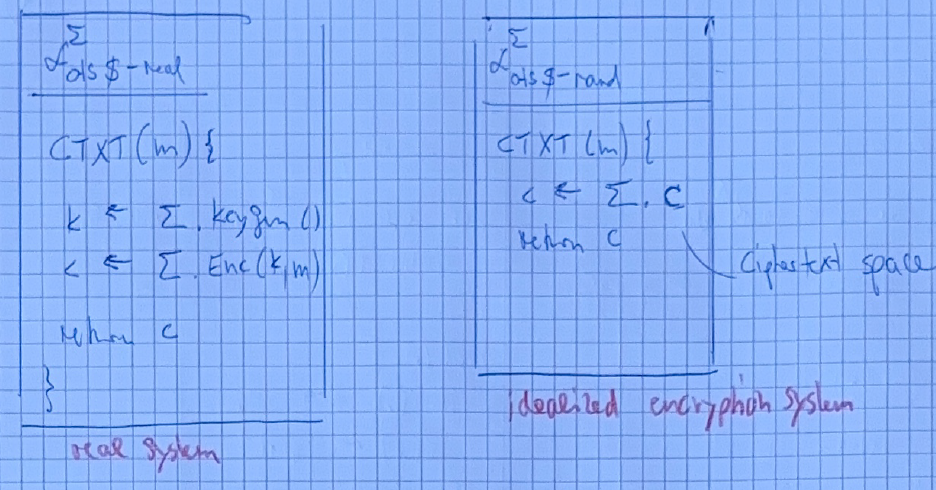 L^Σ ots $-real
CTXT(m) {
k ← Σ.keygen()
c ← Σ.Enc(k,m)
return c
}
real system
L^Σ ots $-rand
CTXT(m) {
c ← Σ.C
return c
Ciphertext space
idealized encryption system